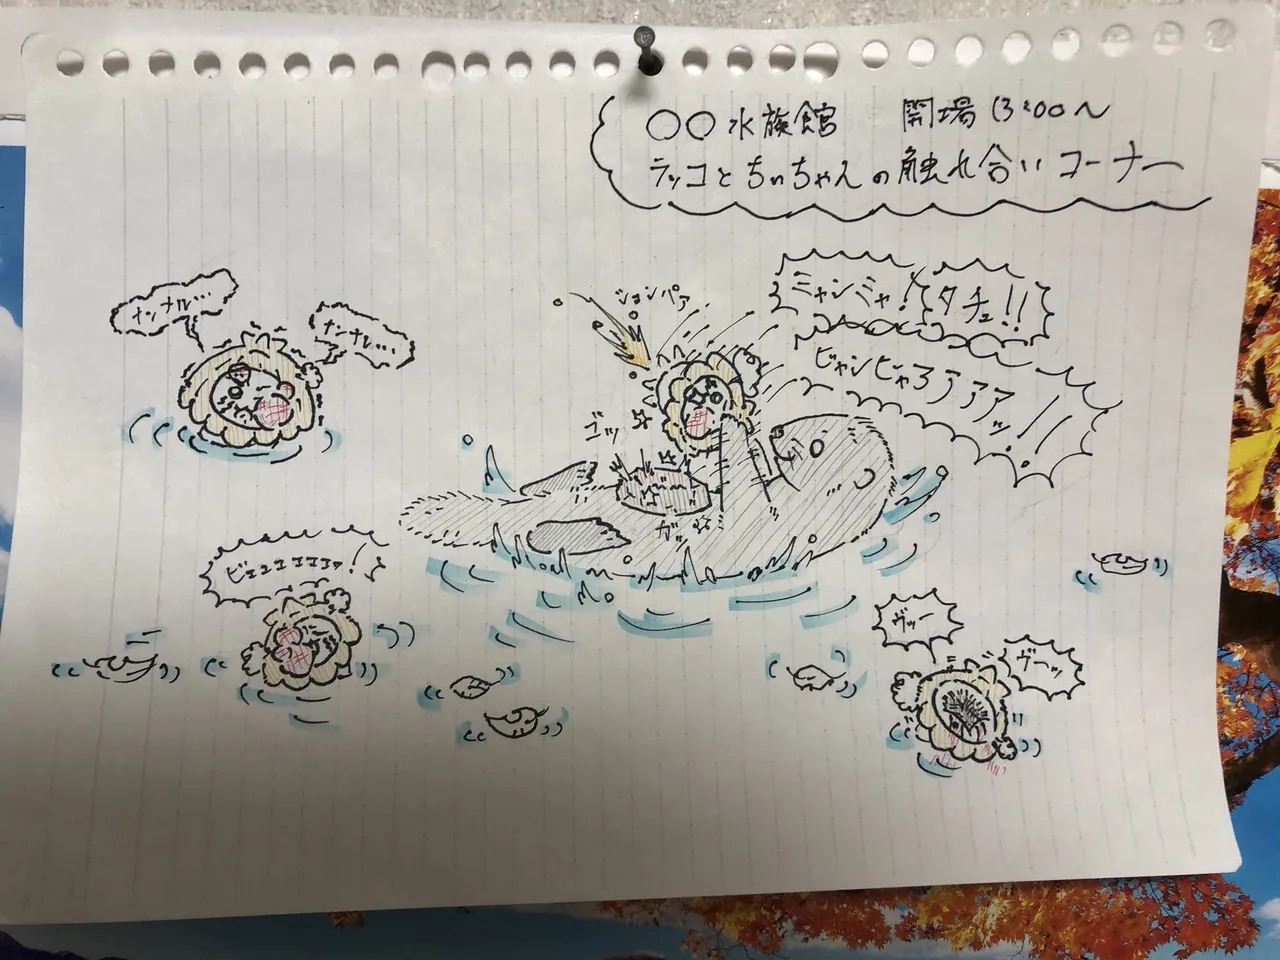 ○○水族館 開場13:00～
ラッコとちぃちゃんの触れ合いコーナー
ミャンミャ!
タチュ!!
ションパァ
ナンナル…
ナンナル…
ビャンヒャヲアアアッ!!
ゴッ
ガッ
ビエエエエエァ!
ヴッー
ヴーッ